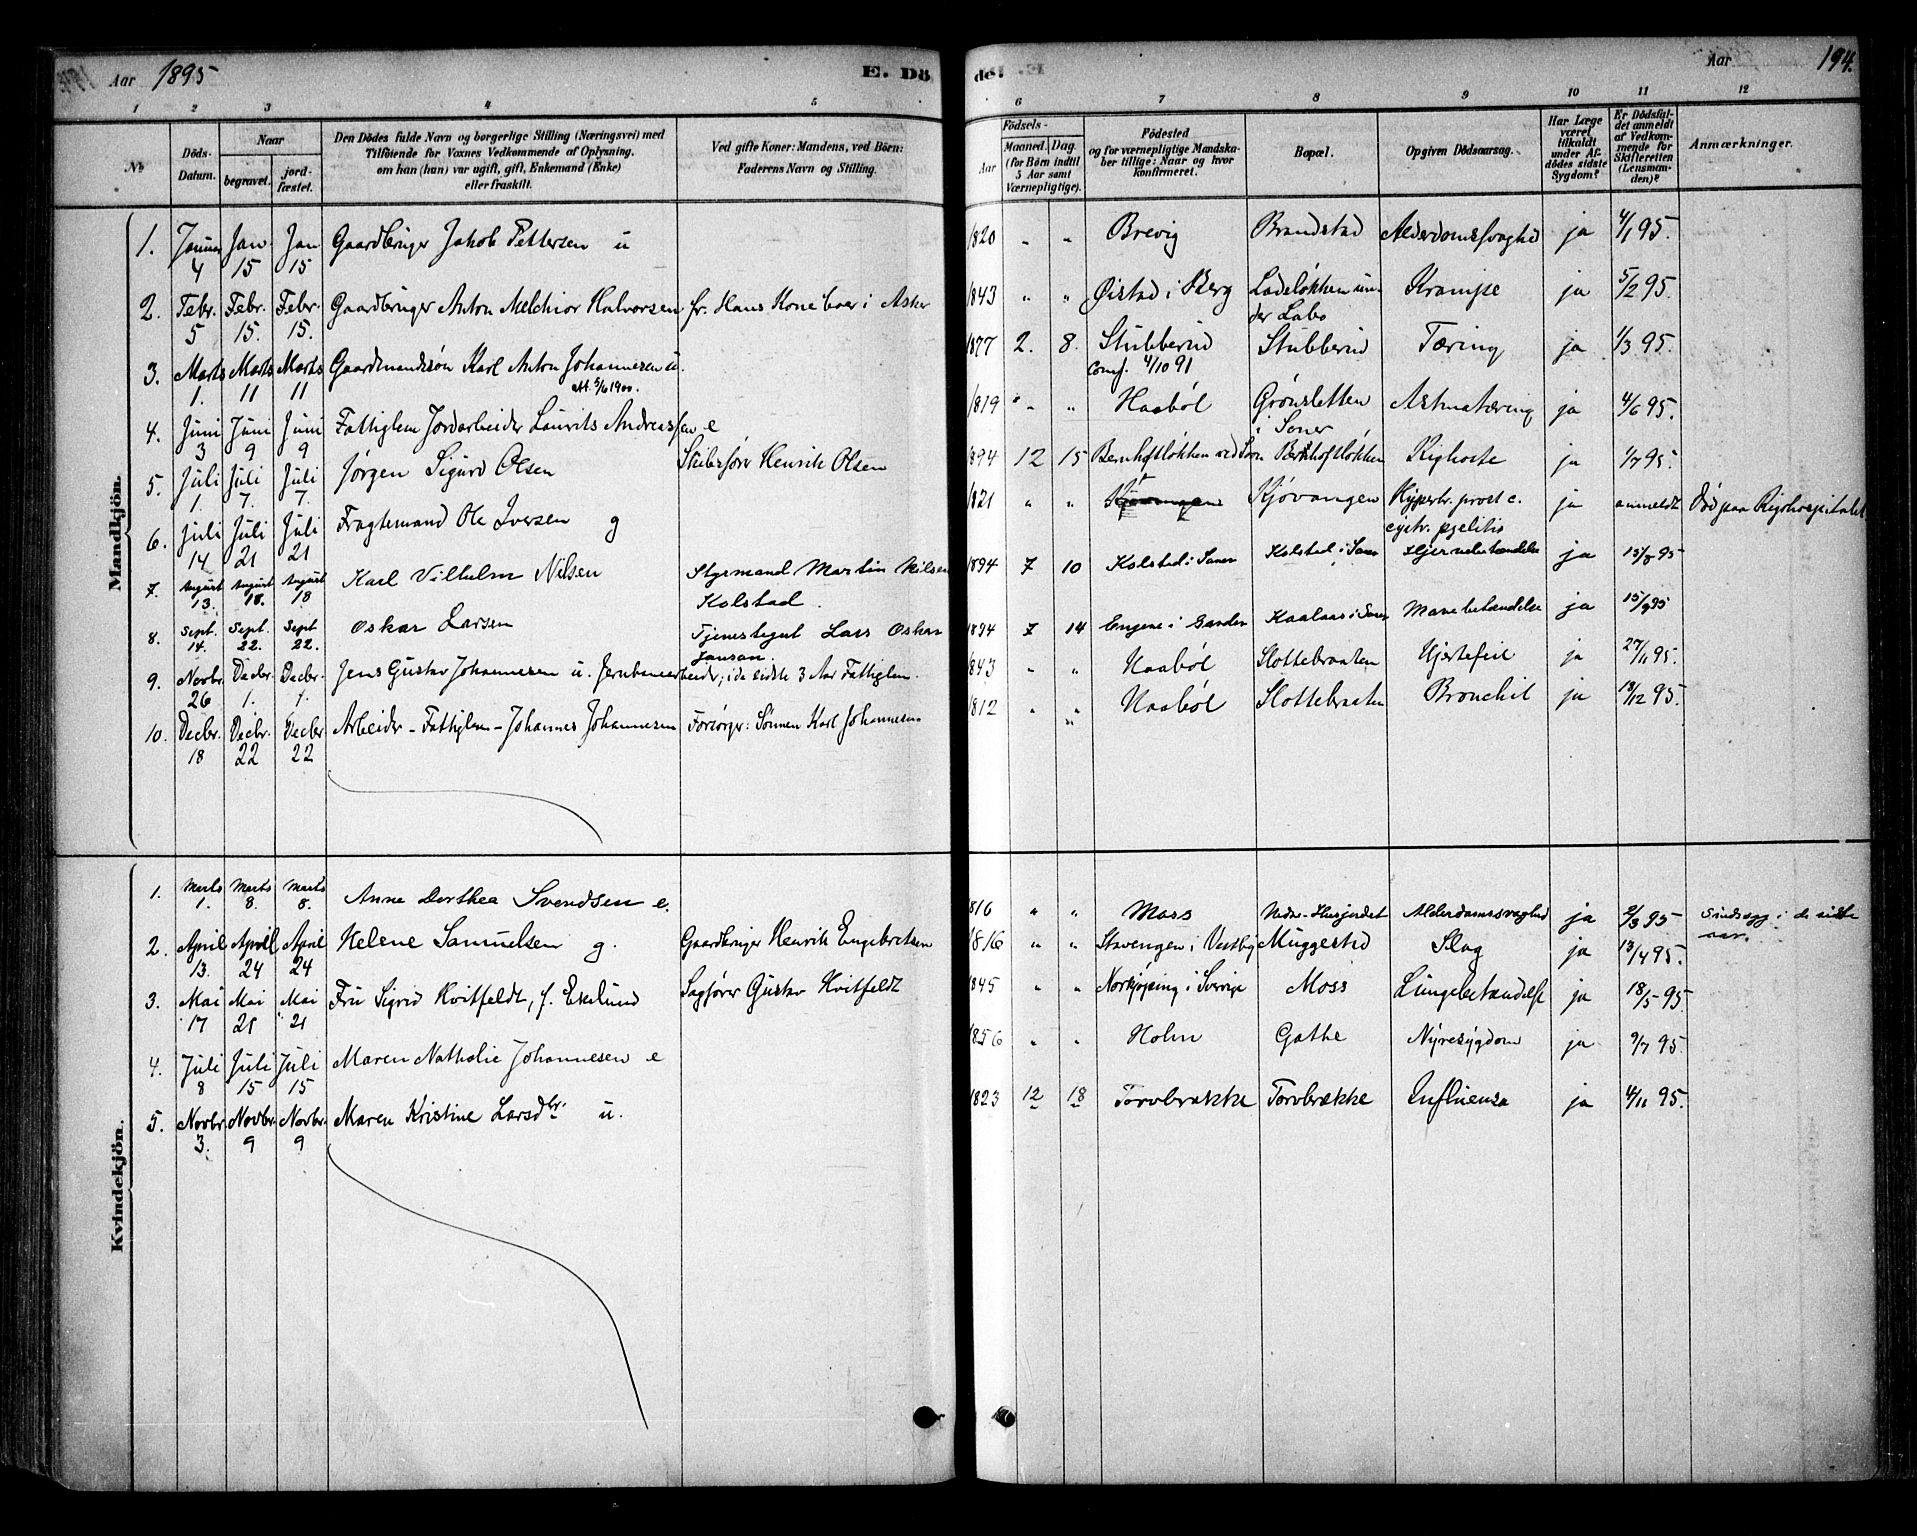 Aar 1895
E. Dö
de.
Aar
194.
1 2 3 4 5
6 7 8 9 10 11 12
No
Döds-Datum.
Naar
begravet.
jord-fæstet.
Den Dödes fulde Navn og borgerlige Stilling (Næringsvei) med
Tilföiende for Voxnes Vedkommende af Oplysning,
om han (hun) var ugift, gift, Enkemand (Enke)
eller fraskilt.
Ved gifte Koner: Mandens, ved Börn:
Faderens Navn og Stilling.
Födsels-
Aar
Maaned. (for Börn indtil 5 Aar samt Værnepligtige).
Dag.
Födested
og for værnepligtige Mandska-
ber tillige: Naar og hvor
konfirmeret.
Bopæl.
Opgiven Dödsaarsag.
Har Læge
været
tilkaldt
under Af-
dödes sidste
Sygdom?
Er Dödsfal-
det anmeldt
af Vedkom-
mende for
Skifteretten
(Lensman-
den)?
Anmærkninger.
Mandkjön.
1. Januar 4 Jan 15 Jan 15 Gaardbruger Jakob Pettersen u 1820 " " Brevig Brandstad Alderdomssvaghed ja 4/1 95.
2. Febr. 5 Febr. 15. Febr. 15. Gaardbruger Anton Melchior Halvorsen fr. Hans Kone boer i Asker 1843 " " Øistad i Berg Ladeløkken un-
der Labo Krampe ja 5/2 95.
3. Marts 1. Marts 11 Marts 11 Gaardmandssøn Karl Anton Johannesen u. 1877 2. 8. Stubberud Stubberud Tæring ja 1/3 95.
att. 5/6 1900. conf. 4/10 91
4. Juni 3 Juni 9 Juni 9 Fattiglem Jordarbeider Laurits Andreassen e 1819 " " Haabøl Grønsletten
i Soner Astmatæring ja 4/6 95.
5. Juli 1. Juli 7. Juli 7. Jørgen Sigurd Olsen Skibsfører Henrik Olsen 1894 12 15 Bernhoftløkken ved Son Bernhoftløkken Kighoste ja 1/7 95.
6. Juli 14 Juli 21 Juli 21 Fragtemand Ole Iversen g 1821 " " Kjøvangen Kjøvangen Hypertr. prost c.
cystr. pyelitis ja anmeldt Død paa Rigshospitalet
7. August 13. August 18. August 18 Karl Vilhelm Nilsen Styrmand Martin Nilsen
Kolstad. 1894 7 10 Kolstad i Soner Kolstad i Soner Hjernebetændelse ja 15/8 95
8. Sept. 14. Sept. 22. Sept 22. Oskar Larsen Tjenestegut Lars Oskar
Jansan. 1894 7 14 Engene i Garder Kaalaas i Soner Mavebetændelse ja 15/9 95
9. Novbr. 26 Decbr. 1. Decbr. 1. Jens Gustav Johannesen u. Jernbanearbeider; i de sidste 3 Aar Fattiglem. 1843 " " Haabøl Slottebraaten Hjertefeil ja 27/11 95.
10. Decbr. 18 Decbr. 22 Decbr 22 Arbeider - Fattiglem - Johannes Johannesen Forsørger: Sønnen Karl Johannesen 1812 " " Haabøl Slottebraaten Bronchit ja 18/12 95.
Kvindekjön.
1. Marts 1. Marts 8. Marts 8. Anne Dorthea Svendsen e. 1816 " " Moss Nedre-Husjordet Alderdomssvaghed ja 2/3 95 Sindssyg i de sidste
aar.
2. April 13. April 24 April 24 Helene Samuelsen g. Gaardbruger Henrik Engebretsen 1816 " " Stavengen i Vestby Muggestad Slag ja 13/4 95.
3. Mai 17 Mai 21 Mai 21 Fru Sigrid Hvitfeldt, f. Ekelund Sagfører Gustav Hvitfeldt 1845 " " Norkjøping i Sverige Moss Lungebetændelse ja 18/5 95.
4. Juli 8 Juli 15 Juli 15 Maren Nathalie Johannesen e 1856 " " Holm Gathe Nyresygdom ja 9/7 95.
5. Novbr. 3. Novbr. 9 Novbr. 9 Maren Kristine Larsdtr. u. 1823 12 18 Torvbrække Torvbrække Influensa ja 4/11 95.